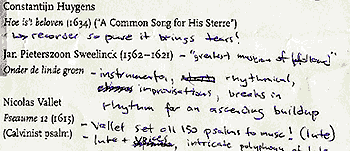 Constantijn Huygens
Hoe is't beloven (1634) ("A Common Song for His Sterre")
↳ recorder so pure it brings tears!
Jan Pieterszoon Sweelinck (1562–1621) – "greatest musician of Holland"
Onder de linde groen – instrumental, rhythmical,
improvisations, breaks in
rhythm for an ascending buildup
Nicolas Vallet
Pseaume 12 (1615)
(Calvinist psalm)
– Vallet set all 150 psalms to music! (lute)
– lute + intricate polyphony of